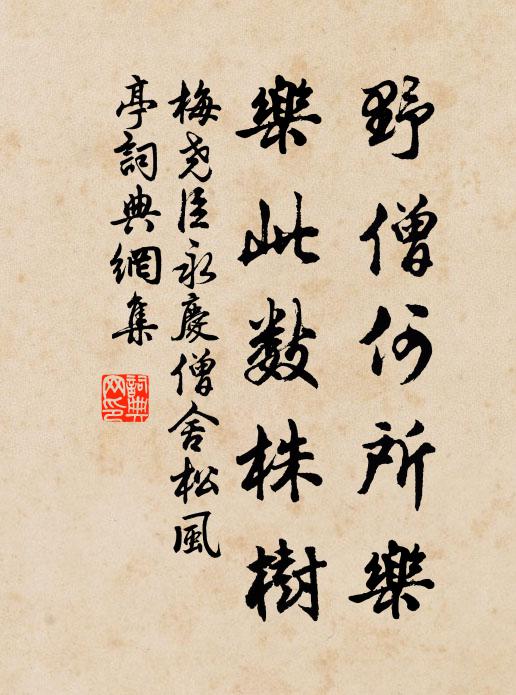 野僧何所樂
樂此数株樹
梅堯臣永慶僧舍松風
亭詞典網集
詞典网印